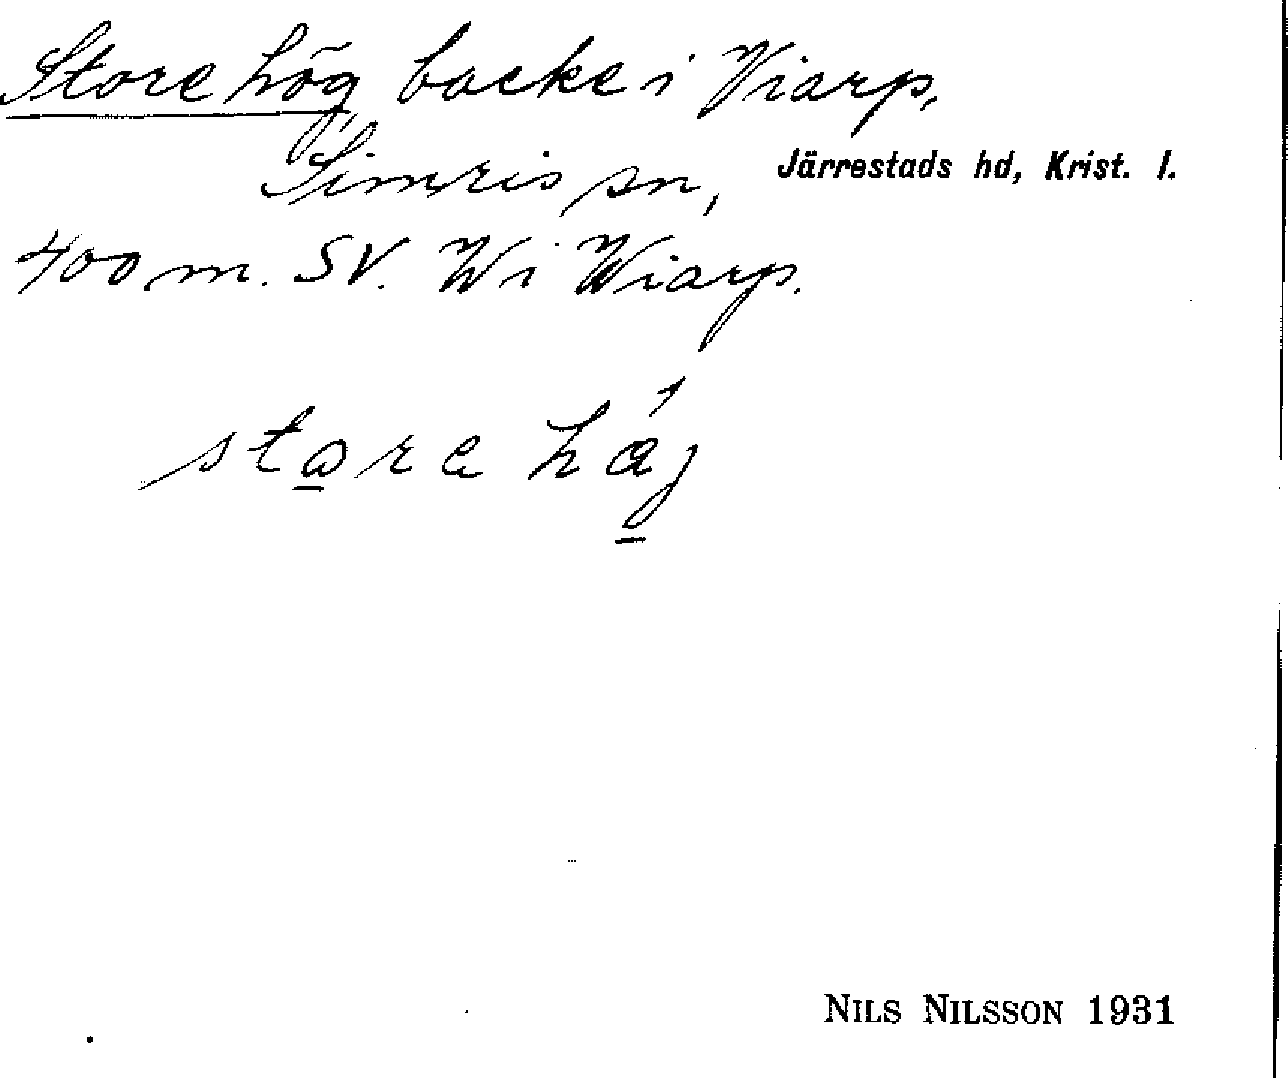 Store hög, backe i Viarp,
Simris sn, Järrestads hd, Krist. l.
400 m. SV. W i Wiarp.
store háj
NILS NILSSON 1931